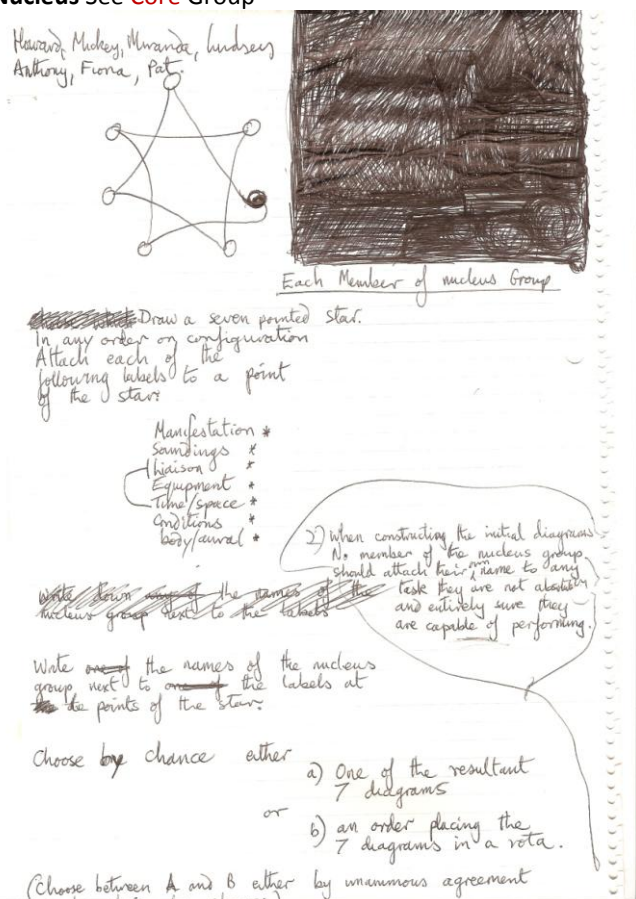 Nucleus See Core Group
Howard, Mickey, Miranda, Lindsey
Anthony, Fiona, Pat.
Each Member of nucleus Group
Draw a seven pointed star.
In any order or configuration
Attach each of the
following labels to a point
of the star:
Manifestation *
Soundings *
Liaison *
Equipment *
Time/space *
Conditions *
body/aural *
2) when constructing the initial diagrams
No member of the nucleus group
should attach their own name to any
task they are not absolutely
and entirely sure they
are capable of performing.
Write down any of the names of the
nucleus group next to the labels
Write one of the names of the nucleus
group next to one of the labels at
the points of the star.
Choose by chance either
a) One of the resultant
7 diagrams
or
b) an order placing the
7 diagrams in a rota.
(Choose between A and B either by unanimous agreement